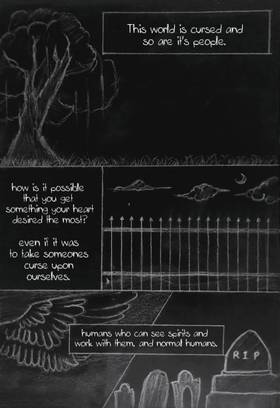 This world is cursed and
so are it's people.
how is it possible
that you get
something your heart
desired the most?
even if it was
to take someones
curse upon
ourselves.
humans who can see spirits and
work with them, and normal humans.
R I P